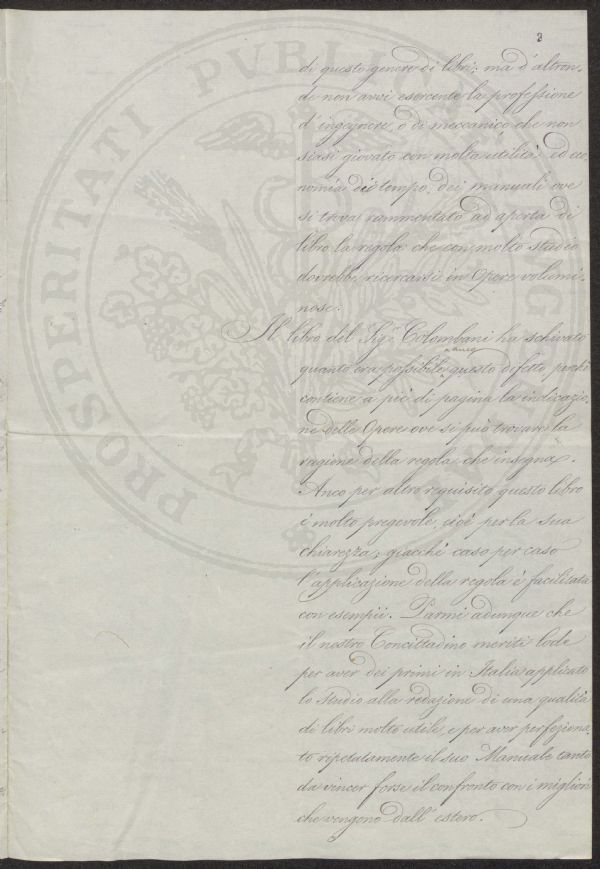 2
di questo genere di libri; ma d'altron,
de non avvi esercente la professione
d'ingegnere, o di meccanico che non
siasi giovato con molta utilità ed eco,
nomia di tempo, dei manuali ove
si trova rammentato ad aperta di
libro la regola che con molto studio
dovrebbe ricercarsi in Opere volumi,
nose.
Il libro del Sigr. Colombani ha schivato
quanto era possibile questo difetto poichè
contiene a piè di pagina la indicazio,
ne delle Opere ove si può trovare la
ragione della regola che insegna.
Anco per altro requisito questo libro
è molto pregevole, cioè per la sua
chiarezza; giacchè caso per caso
l'applicazione della regola è facilitata
con esempii. Parmi adunque che
il nostro Concittadino meriti lode
per aver dei primi in Italia applicato
lo studio alla redazione di una qualità
di libri molto utile, e per aver perfeziona,
to ripetutamente il suo Manuale tanto
da vincer forse il confronto con i migliori
che vengono dall'estero.
PROSPERITATI PVBLI